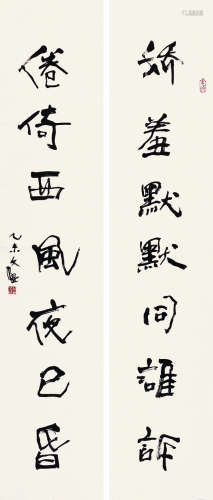 娇羞默默同谁诉
倦倚西风夜已昏
乙未